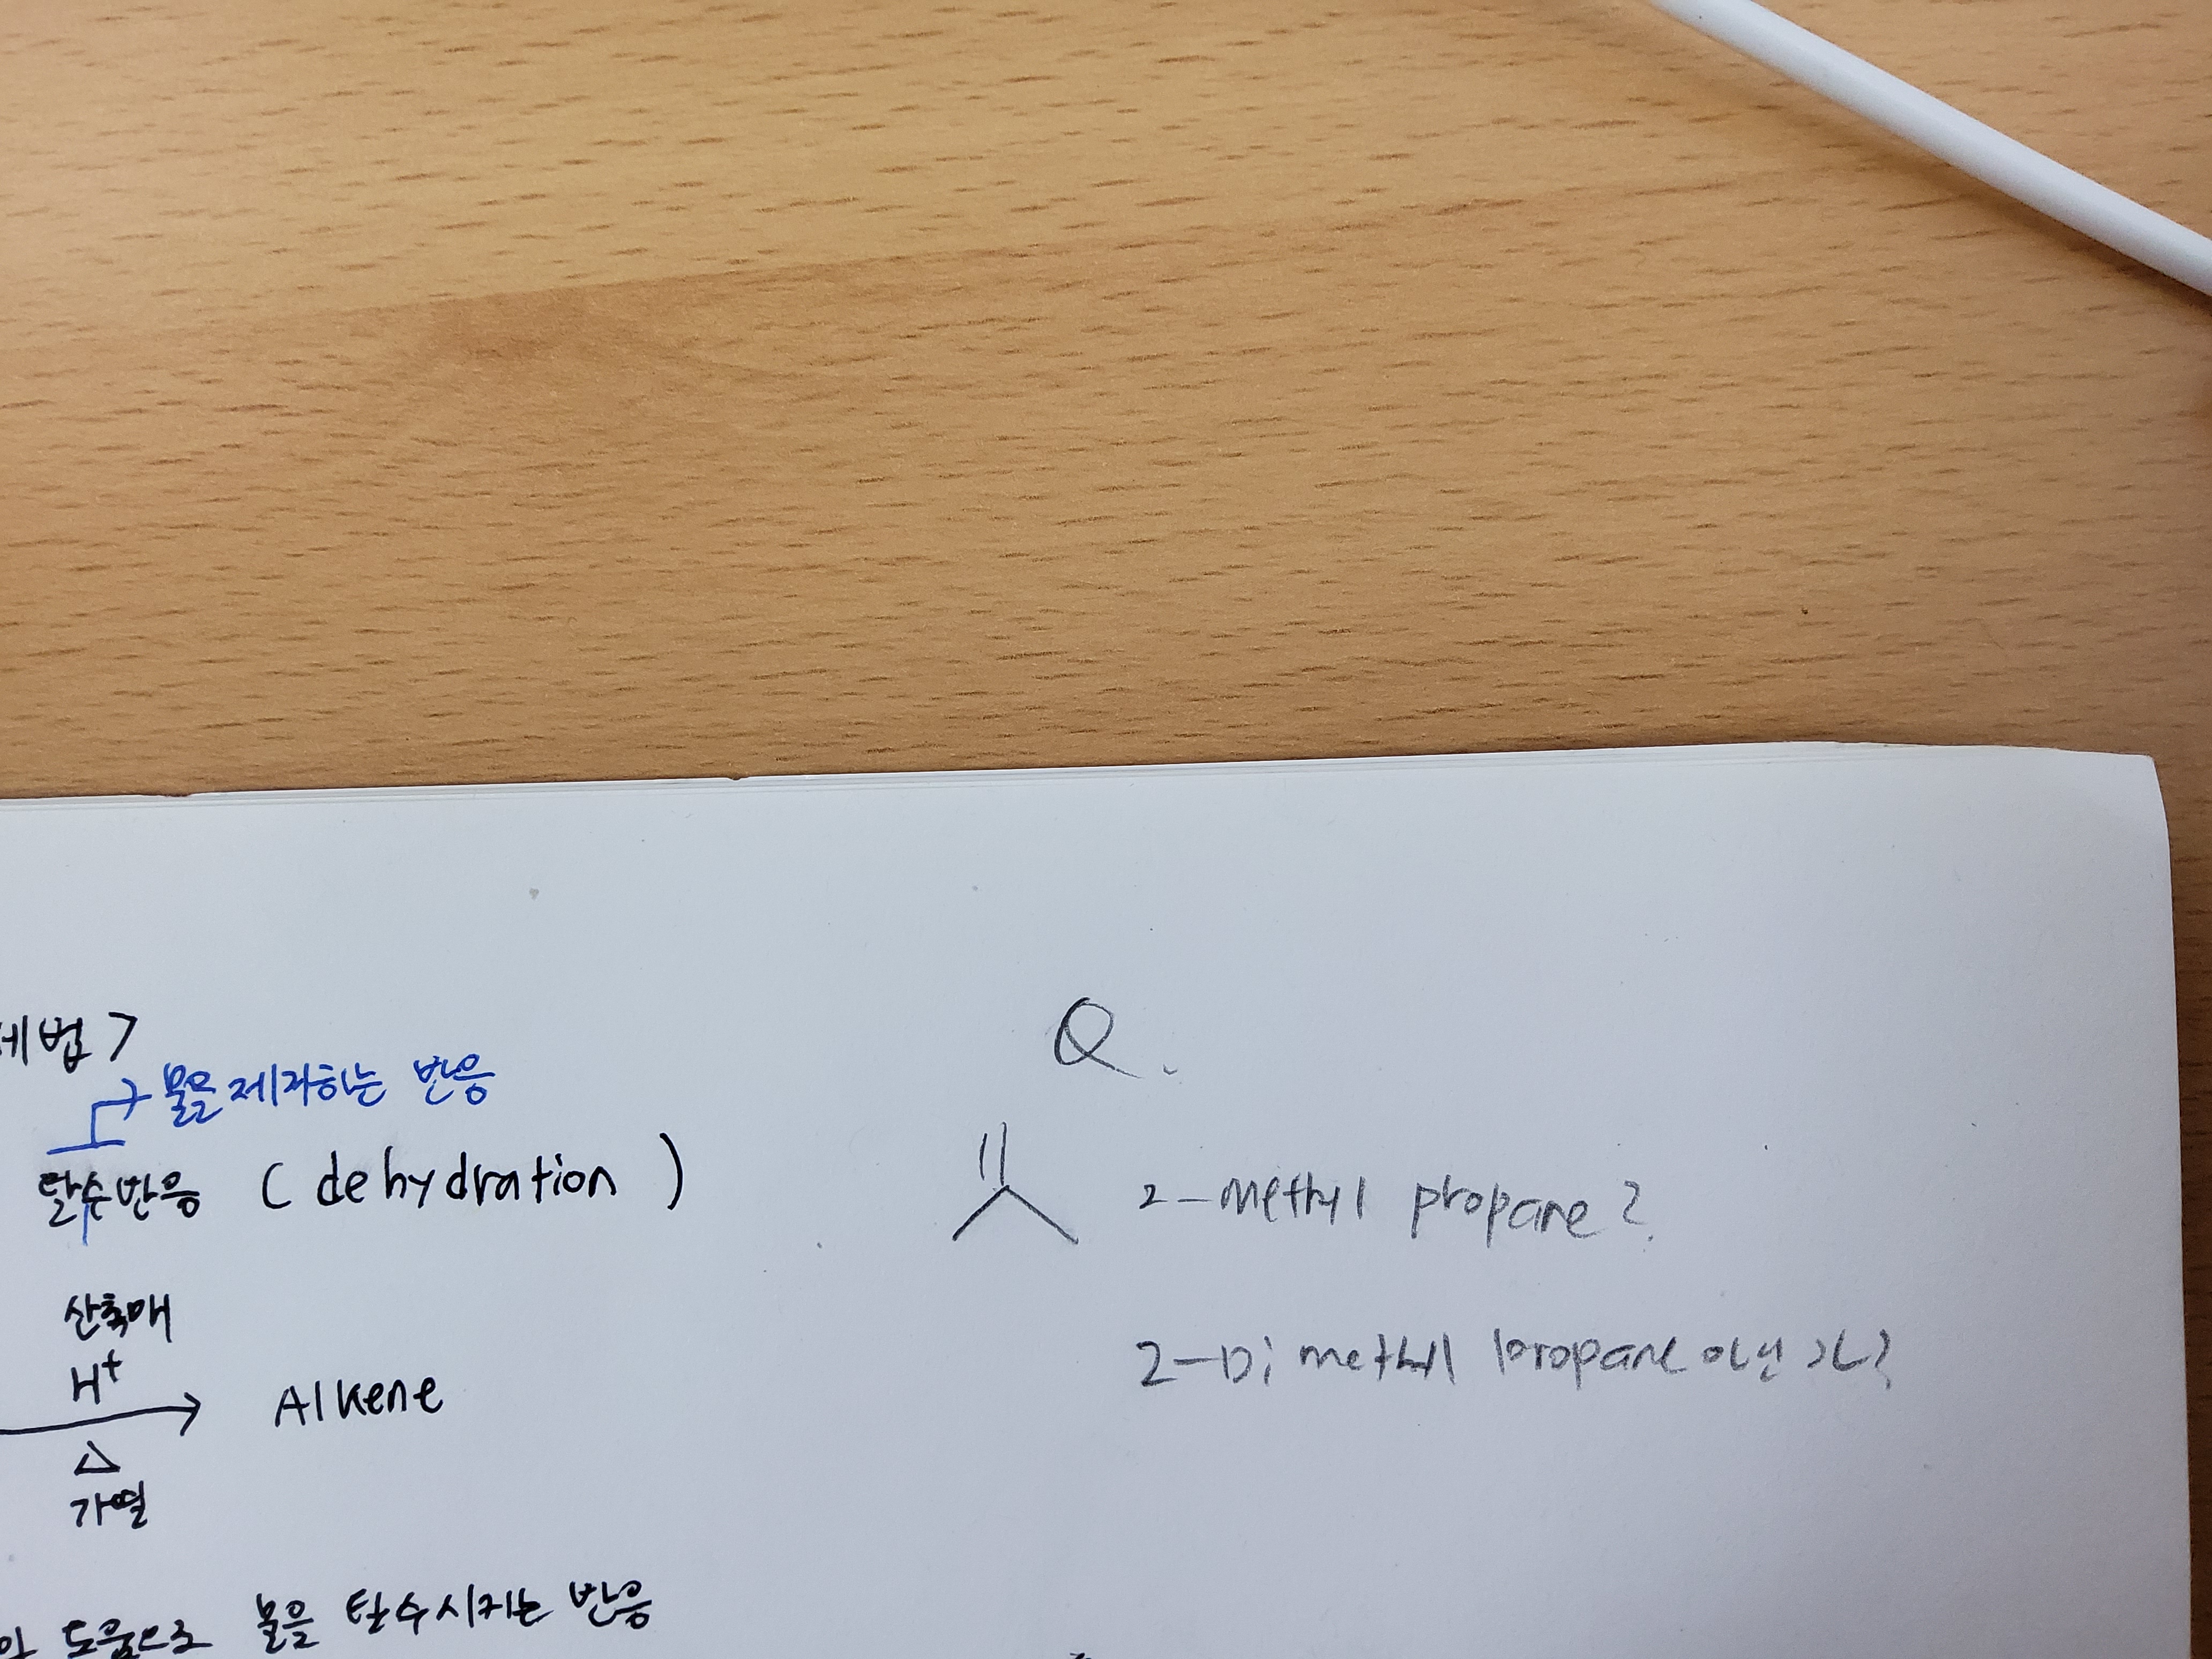 세법>
→ 물을 제거하는 반응
탈수반응 (dehydration)
산촉매
H⁺
→ Alkene
△
가열
도움으로 물을 탈수시키는 반응
Q.
2-methyl propane?
2-Di methyl propane 아닌가?